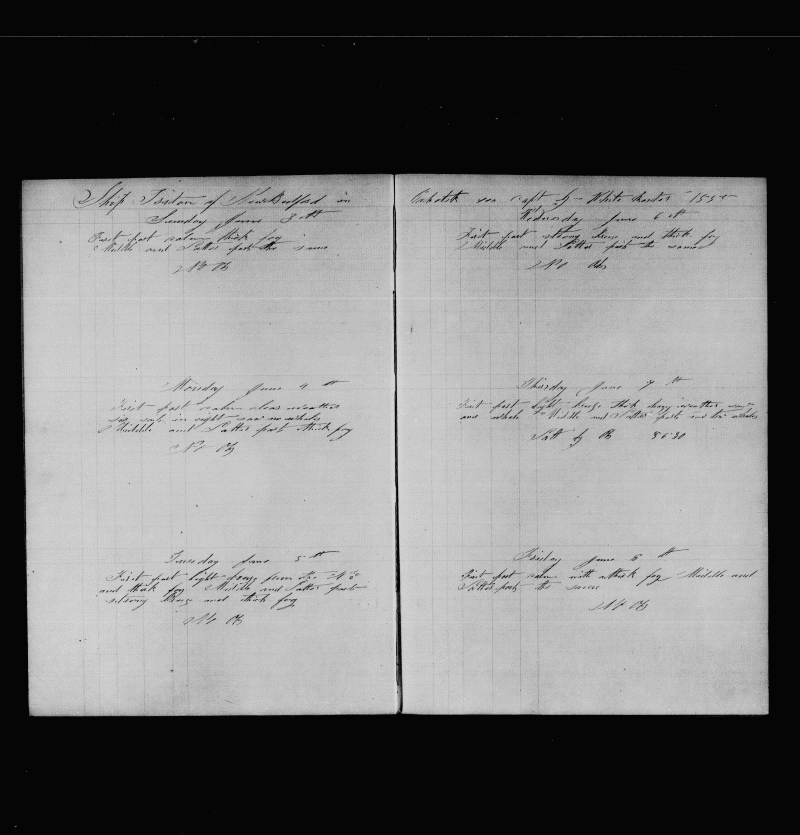 Ship Triton of New Bedford in
Sunday June 3 th
First part calm thick fog
Middle and Latter part the same
No Ob
Monday June 4 th
First part calm clear weather
in sight saw no whales
Middle and Latter part thick fog
No Ob
Tuesday June 5 th
First part light from the
and thick fog Middle and Latter part
strong and thick fog
No Ob
Ochotsk sea Capt White
Wednesday June 6 th
First part strong and thick fog
Middle and Latter part the same
No Ob
Thursday June 7 th
First part light thick weather saw
one whale Middle and Latter part whales
Latt by Ob
Friday June 8 th
First part calm with a thick fog Middle and
Latter part the same
No Ob